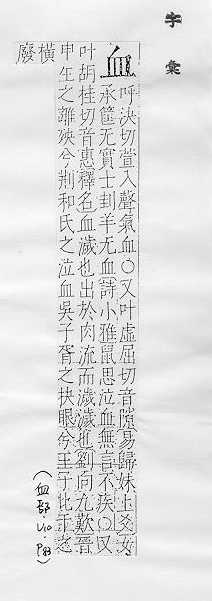 字彙
血
呼決切萱入聲氣血○又叶虛屈切音隨易歸妹上爻女
承筐无實士刲羊无血詩小雅鼠思泣血無言不疾○又
叶胡桂切音惠釋名血濊也出於肉流而濊濊也劉向九歎晉
申生之離殃兮荆和氏之泣血吳子胥之抉眼兮王子比干之
橫廢
(血部. P83)